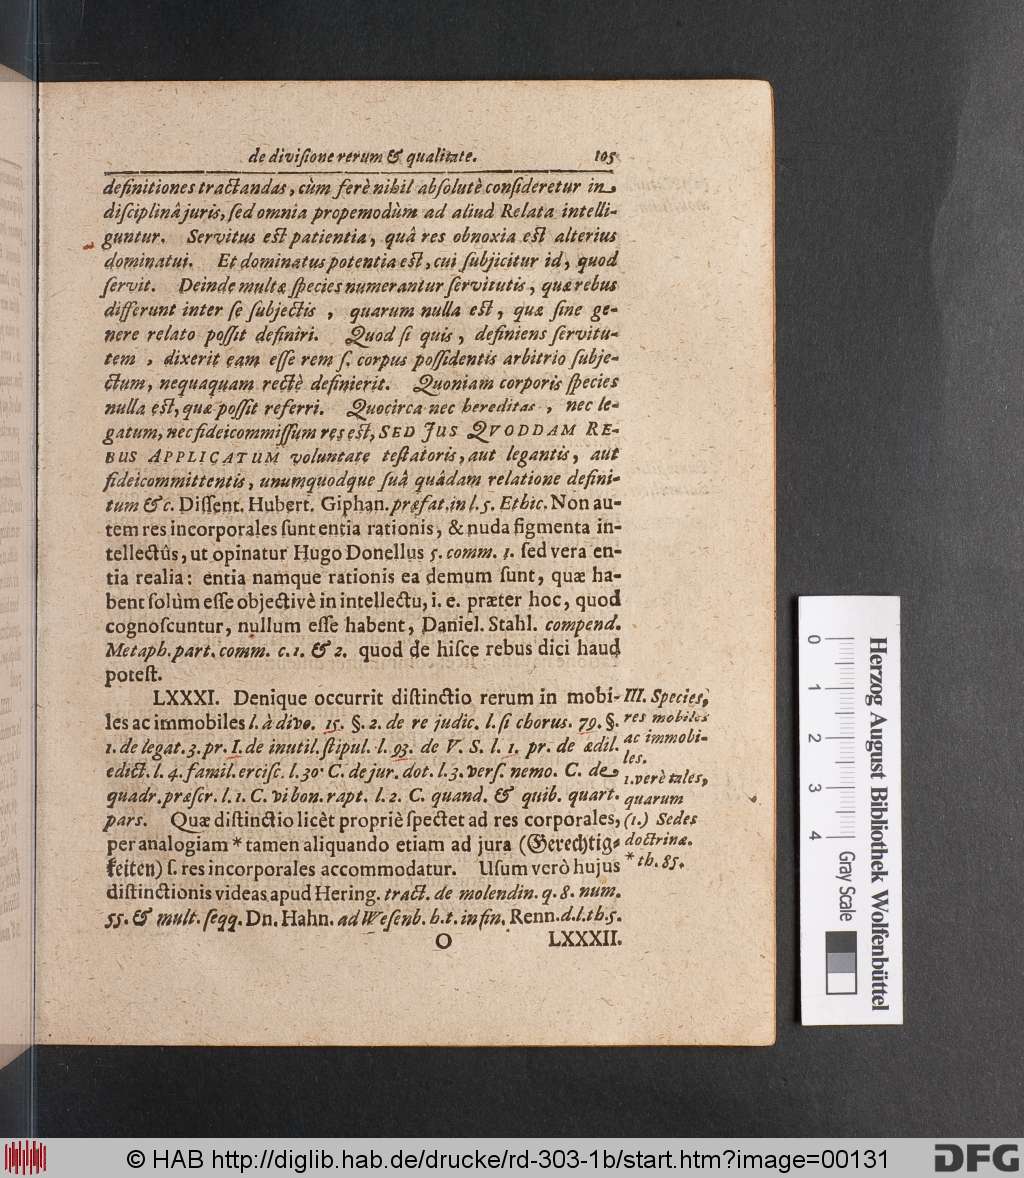 de divisione rerum & qualitate. 105
definitiones tractandas, cùm ferè nihil absolutè consideretur in
disciplinâ juris, sed omnia propemodùm ad aliud Relata intelli-
guntur. Servitus est patientia, quâ res obnoxia est alterius
dominatui. Et dominatus potentia est, cui subjicitur id, quod
servit. Deinde multæ species numerantur servitutis, quæ rebus
differunt inter se subjectis, quarum nulla est, quæ sine ge-
nere relato possit definiri. Quod si quis, definiens servitu-
tem, dixerit eam esse rem s. corpus possidentis arbitrio subje-
ctum, nequaquam rectè definierit. Quoniam corporis species
nulla est, quæ possit referri. Quocirca nec hereditas, nec le-
gatum, nec fideicommissum res est, SED JUS QVODDAM RE-
BUS APPLICATUM voluntate testatoris, aut legantis, aut
fideicommittentis, unumquodque suâ quâdam relatione defini-
tum &c. Dissent. Hubert. Giphan. præfat. in l. 5. Ethic. Non au-
tem res incorporales sunt entia rationis, & nuda figmenta in-
tellectûs, ut opinatur Hugo Donellus 5. comm. 1. sed vera en-
tia realia: entia namque rationis ea demum sunt, quæ ha-
bent solùm esse objectivè in intellectu, i. e. præter hoc, quod
cognoscuntur, nullum esse habent, Daniel. Stahl. compend.
Metaph. part. comm. c. 1. & 2. quod de hisce rebus dici haud
potest.
LXXXI. Denique occurrit distinctio rerum in mobi-
les ac immobiles l. à divo. 15. §. 2. de re judic. l. si chorus. 79. §.
1. de legat. 3. pr. I. de inutil. stipul. l. 93. de V. S. l. 1. pr. de ædil.
edict. l. 4. famil. ercisc. l. 30. C. de jur. dot. l. 3. vers. nemo. C. de
quadr. præscr. l. 1. C. vi bon. rapt. l. 2. C. quand. & quib. quart.
pars. Quæ distinctio licèt propriè spectet ad res corporales,
per analogiam * tamen aliquando etiam ad jura (Gerechtig-
keiten) s. res incorporales accommodatur. Usum verò hujus
distinctionis videas apud Hering. tract. de molendin. q. 8. num.
55. & mult. seqq. Dn. Hahn. ad Wesenb. h. t. in fin. Renn. d. l. th. 5.
O LXXXII.
III. Species,
res mobiles
ac immobi-
les.
1. verè tales,
quarum
(1.) Sedes
doctrinæ.
* th. 85.
0 1 2 3 4
Gray Scale
Herzog August Bibliothek Wolfenbüttel
© HAB http://diglib.hab.de/drucke/rd-303-1b/start.htm?image=00131
DFG